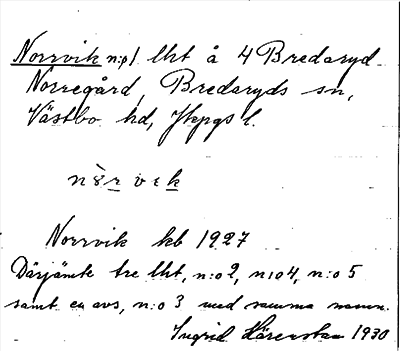 Norrvik n:o 1 lht å 4 Bredaryd
Norregård, Bredaryds sn,
Västbo hd, Jkpgs l.
nòrvik
Norrvik kb 1927
Därjämte tre lht, n:o 2, n:o 4, n:o 5
samt en avs, n:o 3 med samma namn.
Ingrid 1930